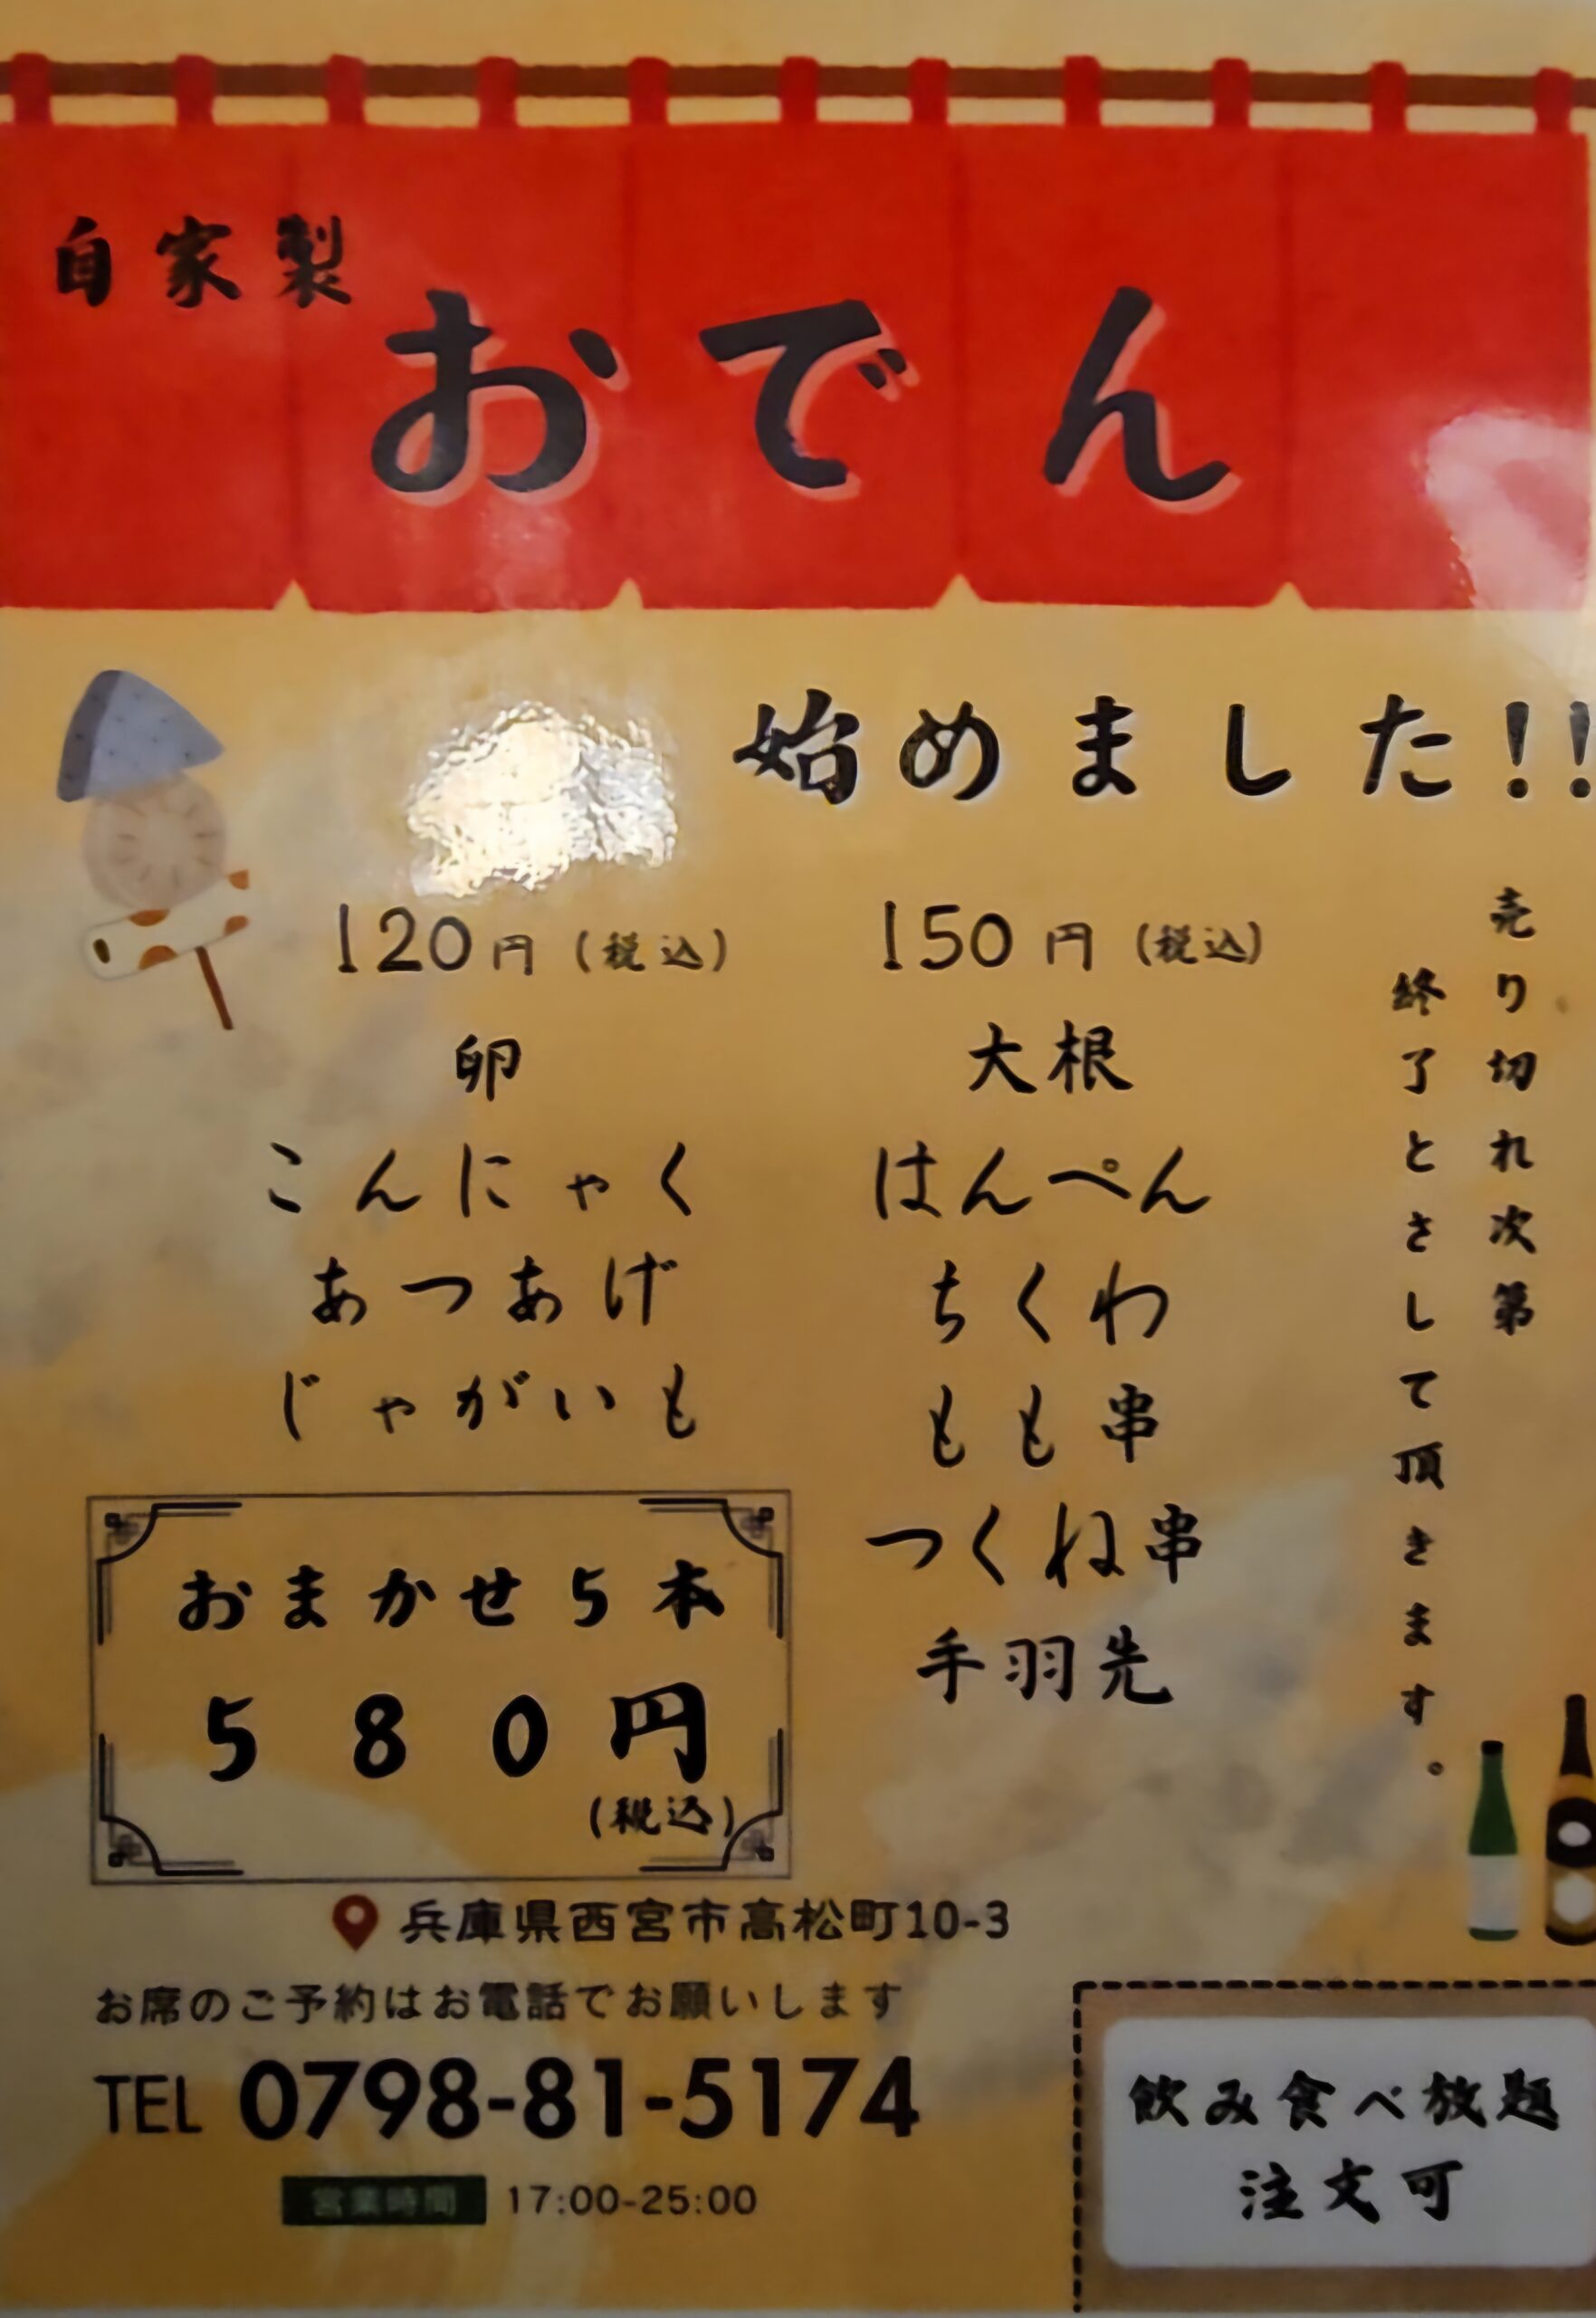 自家製
おでん
始めました!!
120円（税込）
卵
こんにゃく
あつあげ
じゃがいも
150円（税込）
大根
はんぺん
ちくわ
もも串
つくね串
手羽先
売り切れ次第
終了とさして頂きます。
おまかせ5本
580円
（税込）
兵庫県西宮市高松町10-3
お席のご予約はお電話でお願いします
TEL 0798-81-5174
営業時間 17:00-25:00
飲み食べ放題
注文可